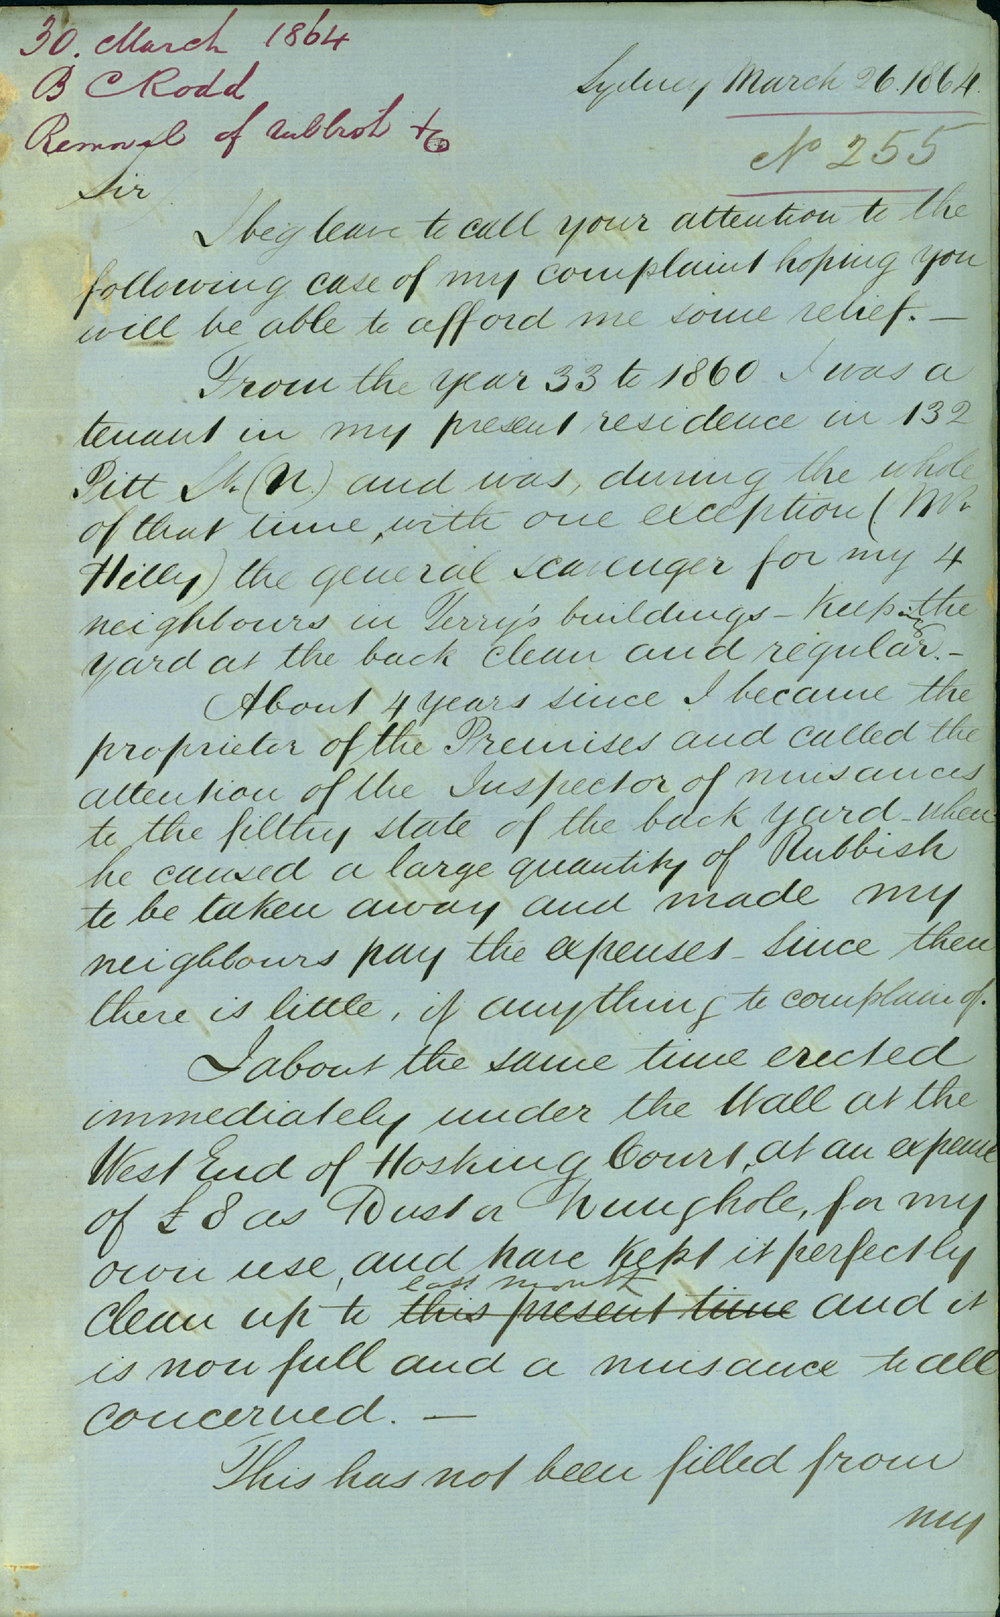 30. March 1864
B C Rodd
Removal of rubbish &c
Sydney March 26. 1864.
No 255
Sir
I beg leave to call your attention to the
following case of my complaint hoping you
will be able to afford me some relief. —
From the year 33 to 1860 I was a
tenant in my present residence in 132
Pitt St. (N.) and was, during the whole
of that time, with one exception (Mr
Hilly) the general scavenger for my 4
neighbours in Terry's buildings – Keeping the
yard at the back clean and regular. –
About 4 years since I became the
proprietor of the Premises and called the
attention of the Inspector of nuisances
to the filthy state of the back yard – when
he caused a large quantity of Rubbish
to be taken away and made my
neighbours pay the expenses – Since then
there is little, if anything to complain of.
I about the same time erected
immediately under the Wall at the
West End of Hosking Court, at an expense
of £8 as Dust or Dunghole, for my
own use, and have kept it perfectly
last month
clean up to this present time and it
is now full and a nuisance to all
concerned. —
This has not been filled from
my